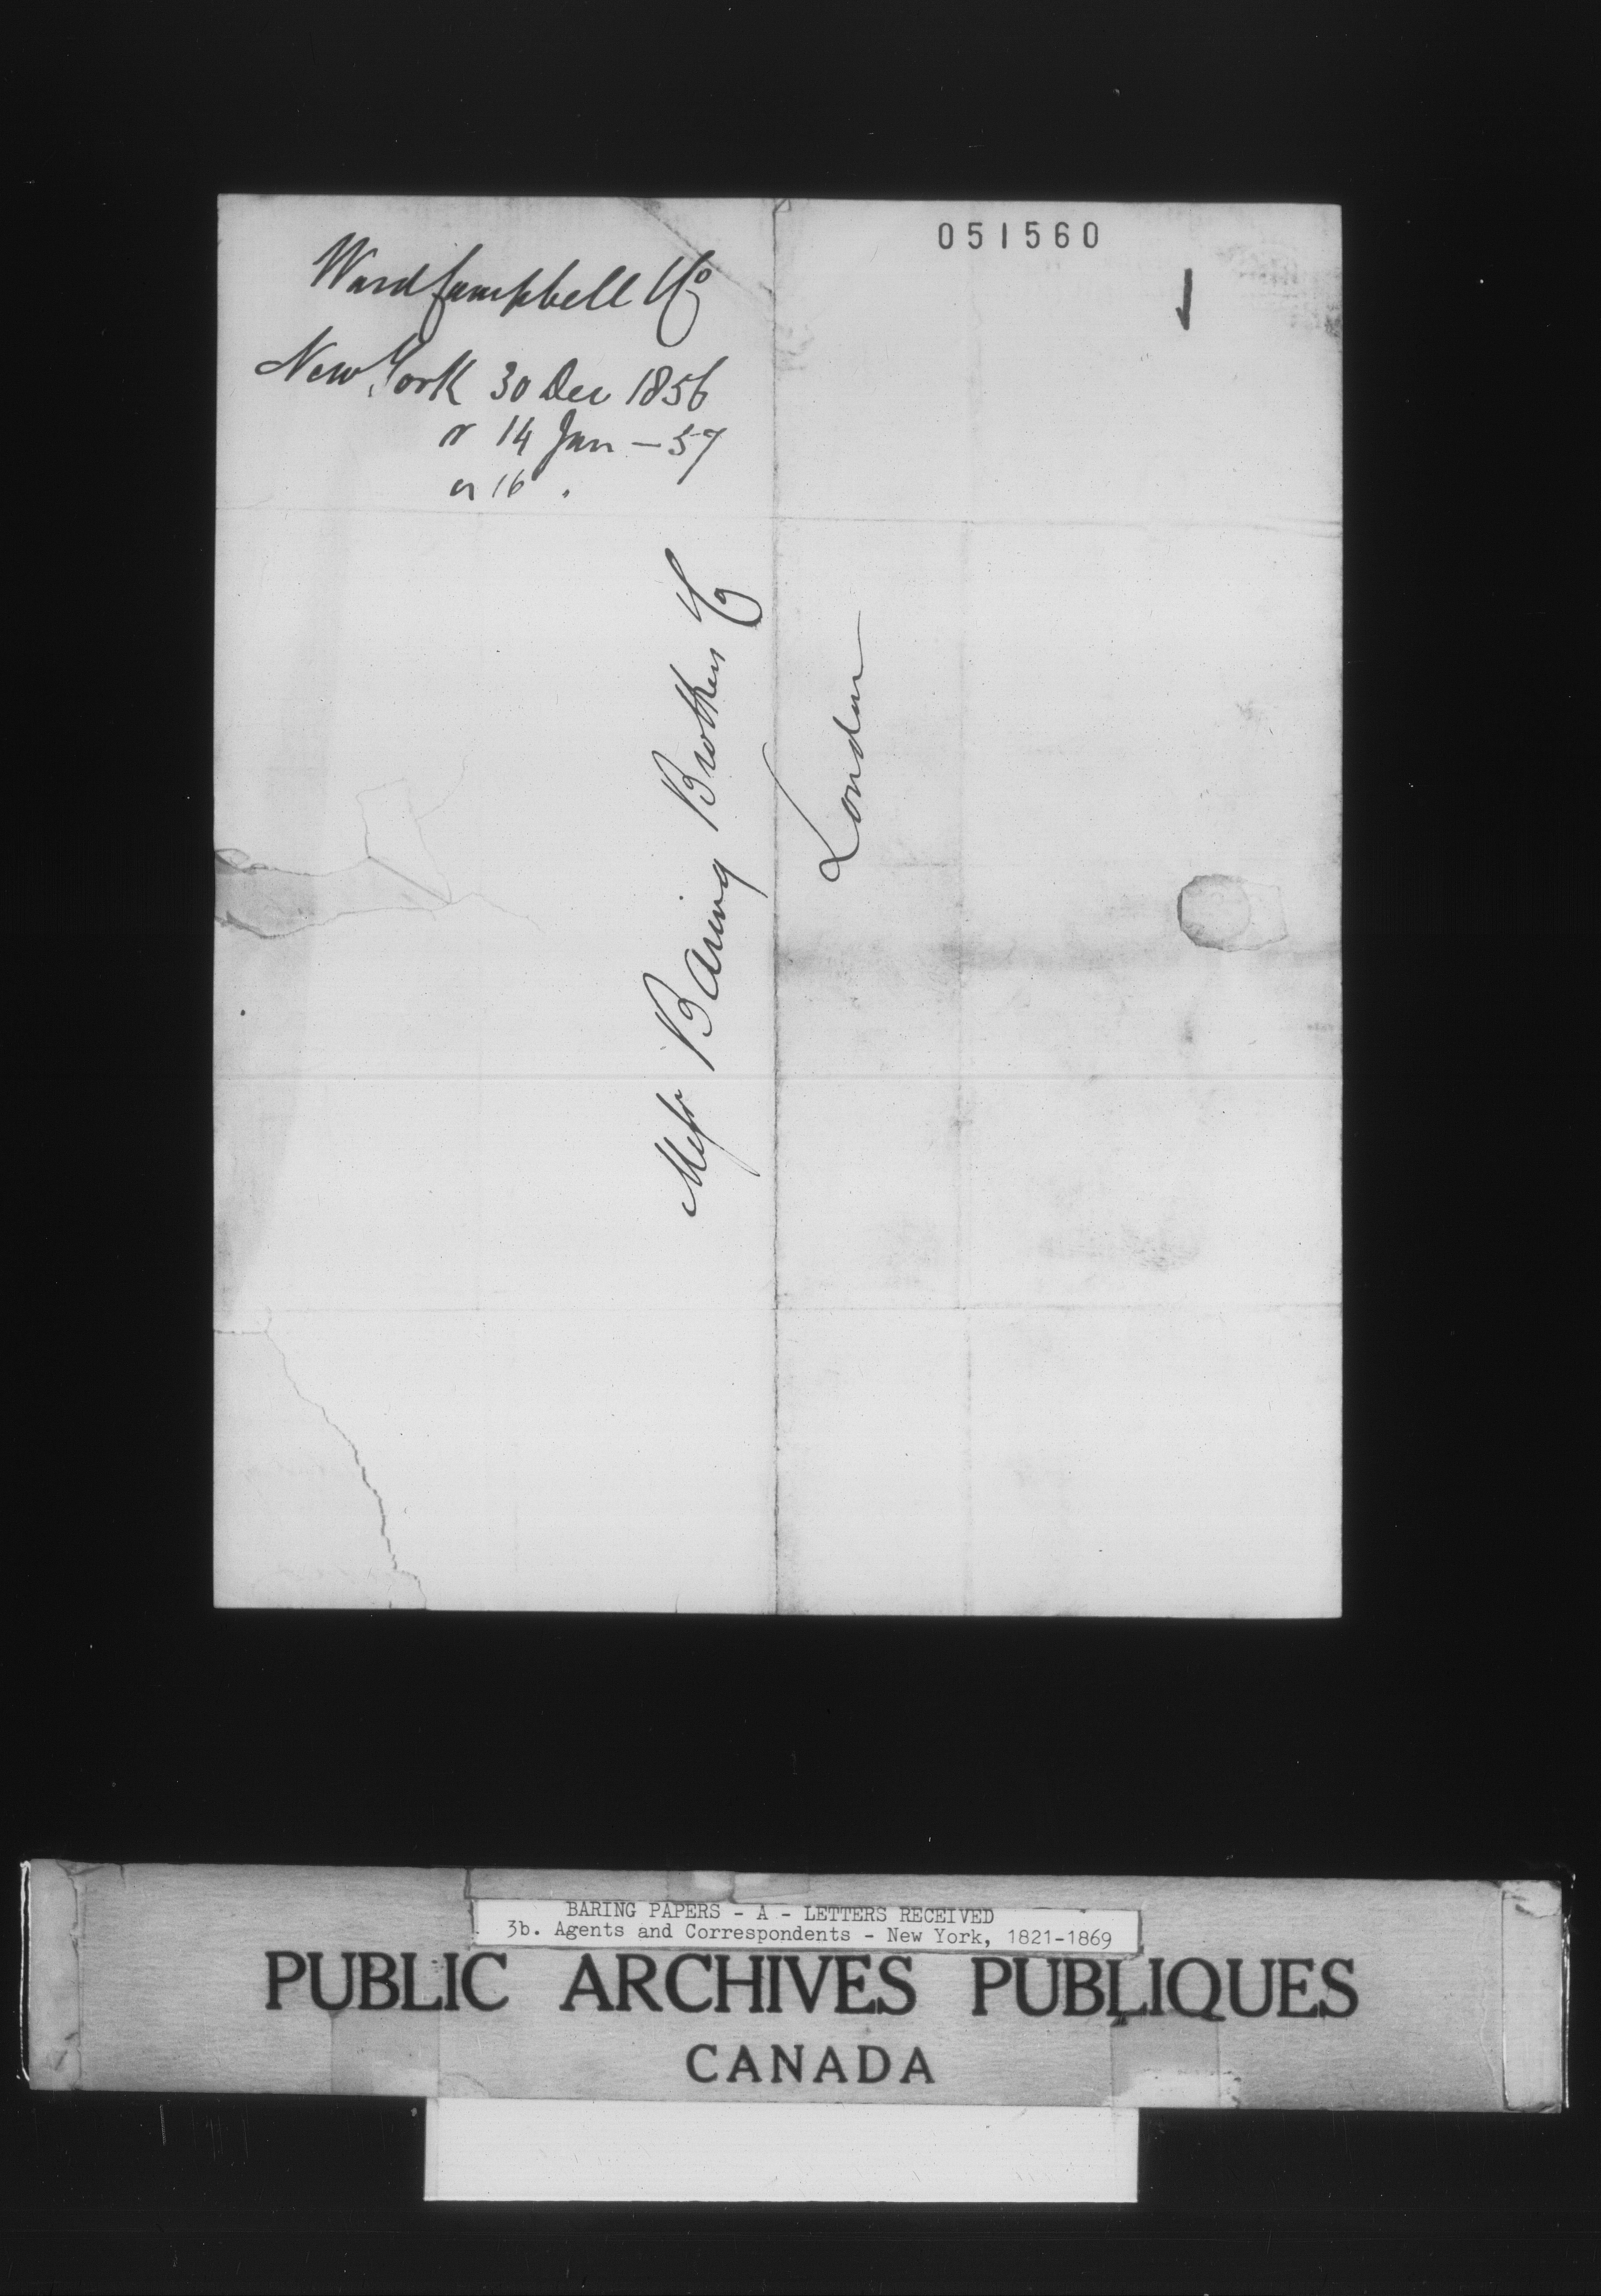 051560
Ward Campbell & Co
New York 30 Dec 1856
r 14 Jan - 57
a 16 .
Messr Baring Brothers & Co
London
BARING PAPERS - A - LETTERS RECEIVED
3b. Agents and Correspondents - New York, 1821-1869
PUBLIC ARCHIVES PUBLIQUES
CANADA